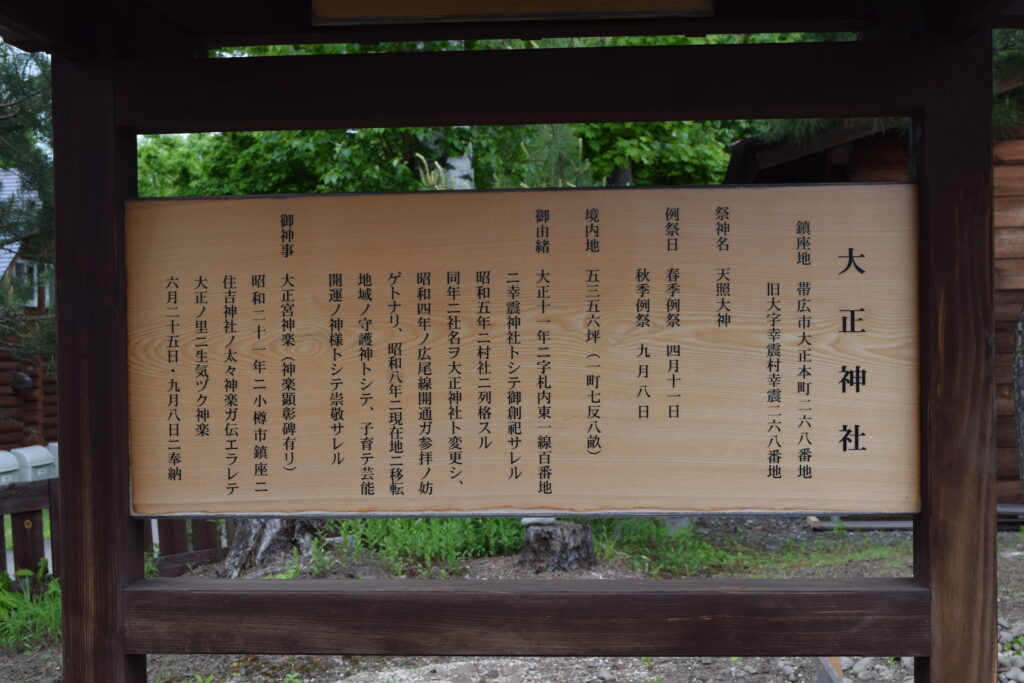 大正神社
鎮座地　帯広市大正本町二六八番地
旧大字幸震村幸震二六八番地
祭神名　天照大神
例祭日　春季例祭　四月十一日
秋季例祭　九月八日
境内地　五三五六坪（一町七反八畝）
御由緒　大正十一年ニ字札内東一線百番地
ニ幸震神社トシテ御創祀サレル
昭和五年ニ村社ニ列格スル
同年ニ社名ヲ大正神社ト変更シ、
昭和四年ノ広尾線開通ガ参拝ノ妨
ゲトナリ、昭和八年ニ現在地ニ移転
地域ノ守護神トシテ、子育テ芸能
開運ノ神様トシテ崇敬サレル
御神事　大正宮神楽（神楽顕彰碑有リ）
昭和二十二年ニ小樽市鎮座ニ
住吉神社ノ太々神楽ガ伝エラレテ
大正ノ里ニ生気ヅク神楽
六月二十五日・九月八日ニ奉納